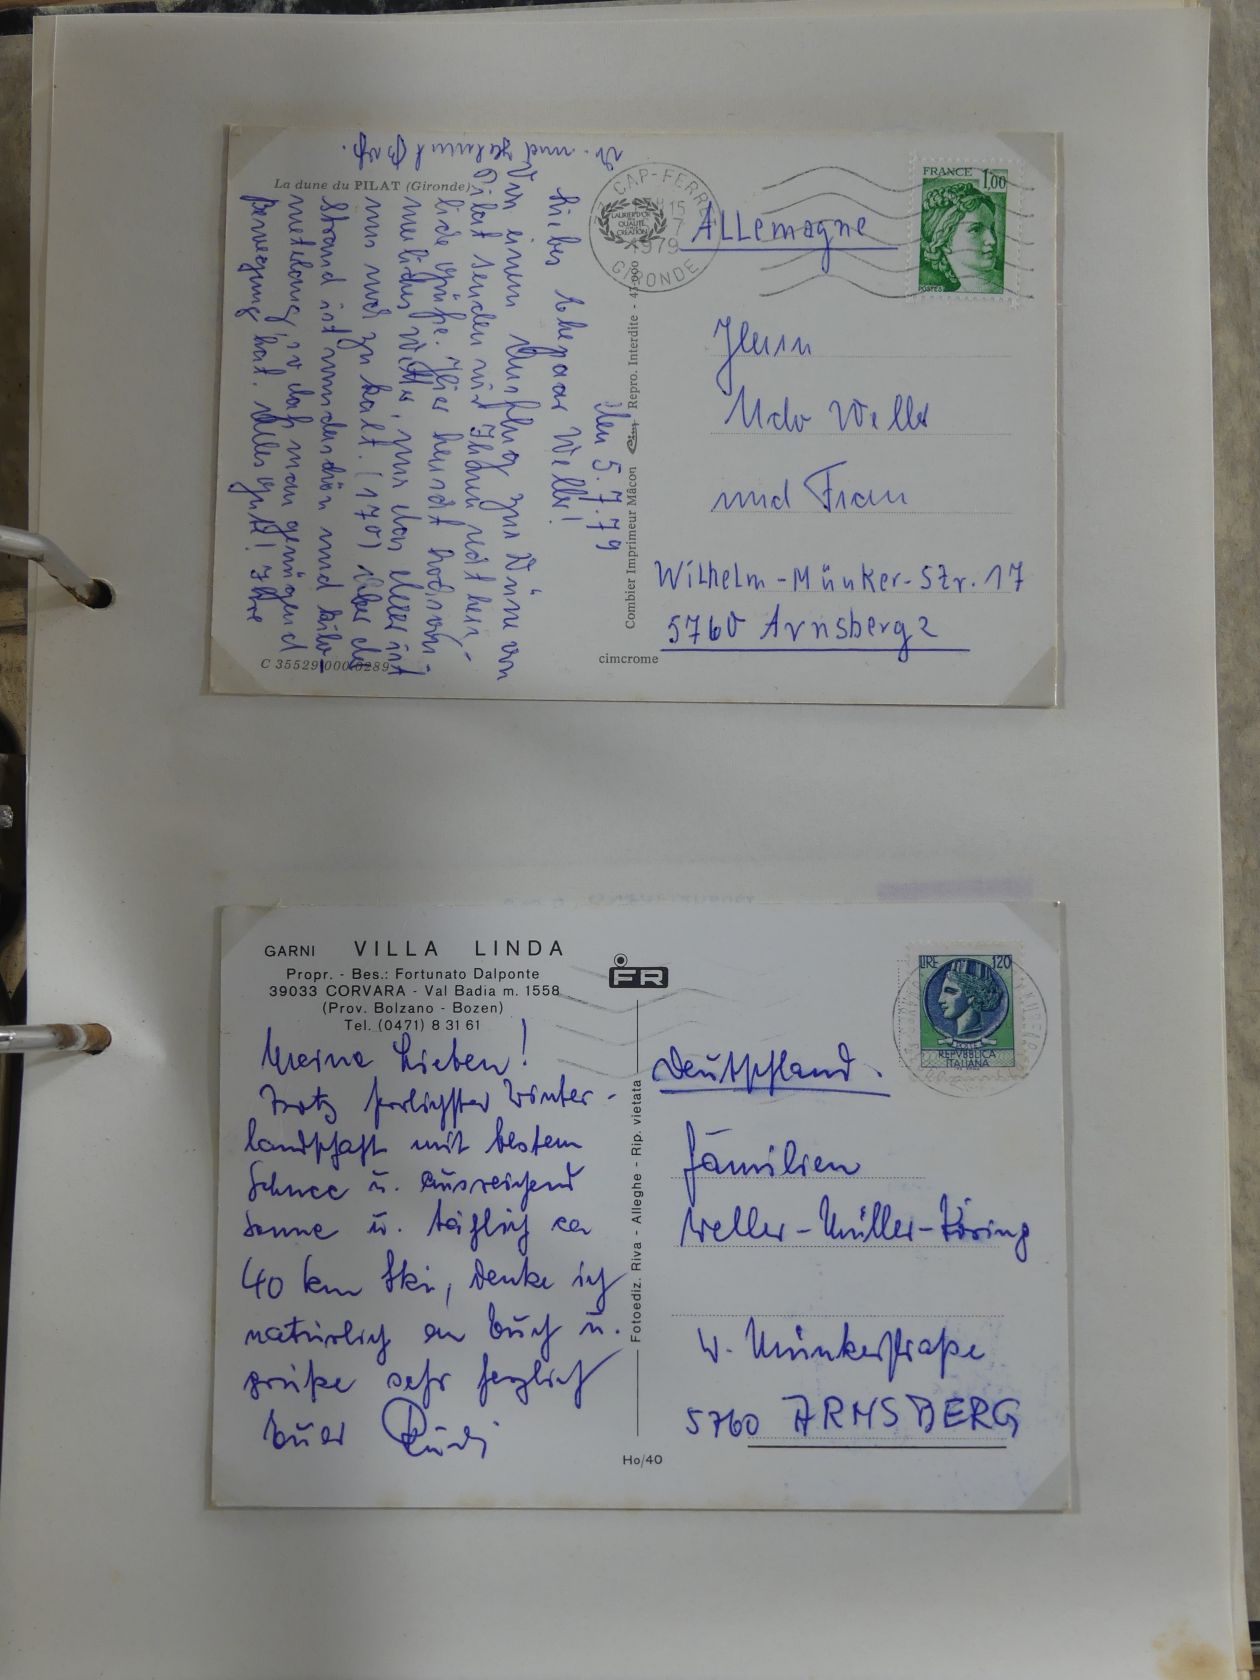 La dune du PILAT (Gironde)
den 5.7.79
Liebes Ehepaar Weller!
Von einem Ausflug zur Düne von
Pilat senden wir Ihnen recht herz-
liche Grüße. Hier herrscht hochsom-
merliches Wetter, nur das Meer ist
uns noch zu kalt. (17°) Aber der
Strand ist wunderschön und kilo-
meterlang, so daß man genügend
Bewegung hat. Alles Gute! Ihre
und Helmut
C 35529 000 0289
cimcrome
Combier Imprimeur Mâcon Cim Repro. Interdite - 43.000
33 CAP-FERRET
15
7
1979
GIRONDE
LAURIER D'OR
QUALITÉ
CRÉATION
FRANCE 1,00
POSTES
ALLemagne
Herrn
Udo Weller
und Frau
Wilhelm-Münker-Str. 17
5760 Arnsberg 2
GARNI VILLA LINDA
Propr. - Bes.: Fortunato Dalponte
39033 CORVARA - Val Badia m. 1558
(Prov. Bolzano - Bozen)
Tel. (0471) 8 31 61
FR
Meine Lieben!
Trotz herrlichster Winter-
landschaft mit bestem
Schnee u. ausreichend
Sonne u. täglich ca
40 km Ski, denke ich
natürlich an Euch u.
grüße sehr herzlich
Euer Rudi
Fotoediz. Riva - Alleghe - Rip. vietata
Ho/40
LIRE 120
POSTE
REPVBBLICA
ITALIANA
Deutschland.
Familien
Weller-Müller-Döring
W. Münkerstraße
5760 ARNSBERG